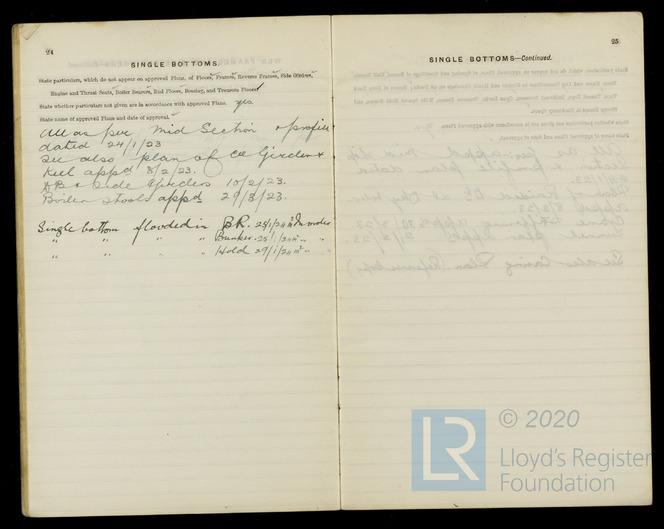 24
SINGLE BOTTOMS.
State particulars, which do not appear on approved Plans, of Floors, Frames, Reverse Frames, Side Girders,
Engine and Thrust Seats, Boiler Bearers, End Floors, Bossing, and Transom Floors
State whether particulars not given are in accordance with approved Plans. yes
State name of approved Plans and date of approval
All as per Mid Section & profile
dated 24/1/23
See also plan of CL Girder &
Keel appd 8/2/23.
& Side Girders 10/2/23.
Boiler stools appd 29/3/23.
Single bottom flooded in B.R. 25/1/24
" " " " Bunker 25/1/24 " "
" " " " Hold 29/1/24 " "
25
SINGLE BOTTOMS—Continued.
LR
© 2020
Lloyd's Register
Foundation